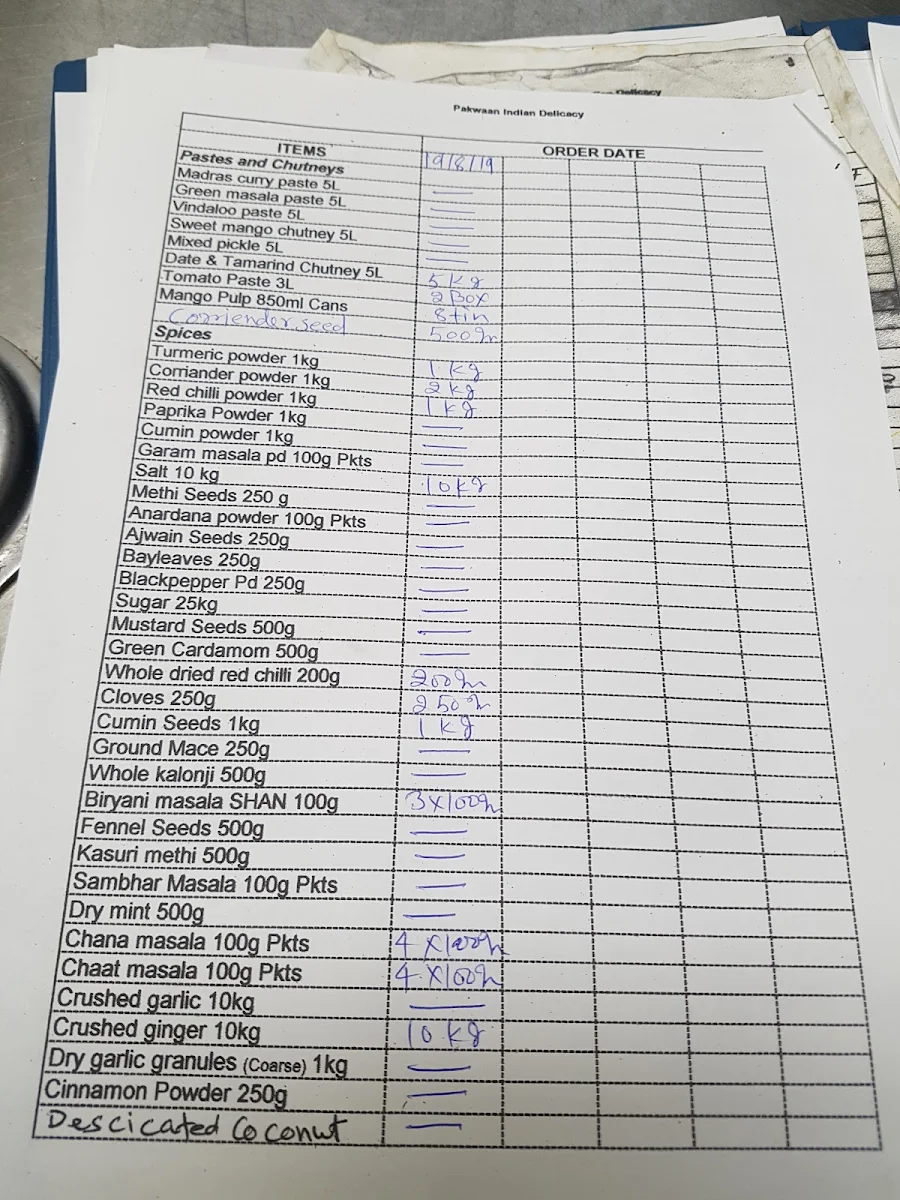 Delicacy
Pakwaan Indian Delicacy
ITEMS ORDER DATE
Pastes and Chutneys 19/8/19
Madras curry paste 5L —
Green masala paste 5L —
Vindaloo paste 5L —
Sweet mango chutney 5L —
Mixed pickle 5L —
Date & Tamarind Chutney 5L 5 kg
Tomato Paste 3L 2 Box
Mango Pulp 850ml Cans 8 tin
Corriender seed 500gm
Spices
Turmeric powder 1kg 1 kg
Corriander powder 1kg 2 kg
Red chilli powder 1kg 1 kg
Paprika Powder 1kg —
Cumin powder 1kg —
Garam masala pd 100g Pkts —
Salt 10 kg 10 kg
Methi Seeds 250 g —
Anardana powder 100g Pkts —
Ajwain Seeds 250g —
Bayleaves 250g —
Blackpepper Pd 250g —
Sugar 25kg —
Mustard Seeds 500g —
Green Cardamom 500g —
Whole dried red chilli 200g 200gm
Cloves 250g 250gm
Cumin Seeds 1kg 1 kg
Ground Mace 250g —
Whole kalonji 500g —
Biryani masala SHAN 100g 3x100gm
Fennel Seeds 500g —
Kasuri methi 500g —
Sambhar Masala 100g Pkts —
Dry mint 500g —
Chana masala 100g Pkts 4 x100gm
Chaat masala 100g Pkts 4 x100gm
Crushed garlic 10kg —
Crushed ginger 10kg 10 kg
Dry garlic granules (Coarse) 1kg —
Cinnamon Powder 250g —
Descicated Coconut —